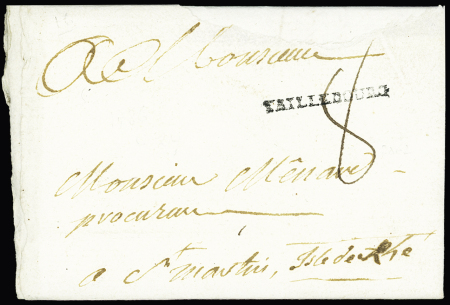 A Monsieur
TAILLEBOURG
8
Monsieur Ménard
procureur
a St martin, Isle de Rhé